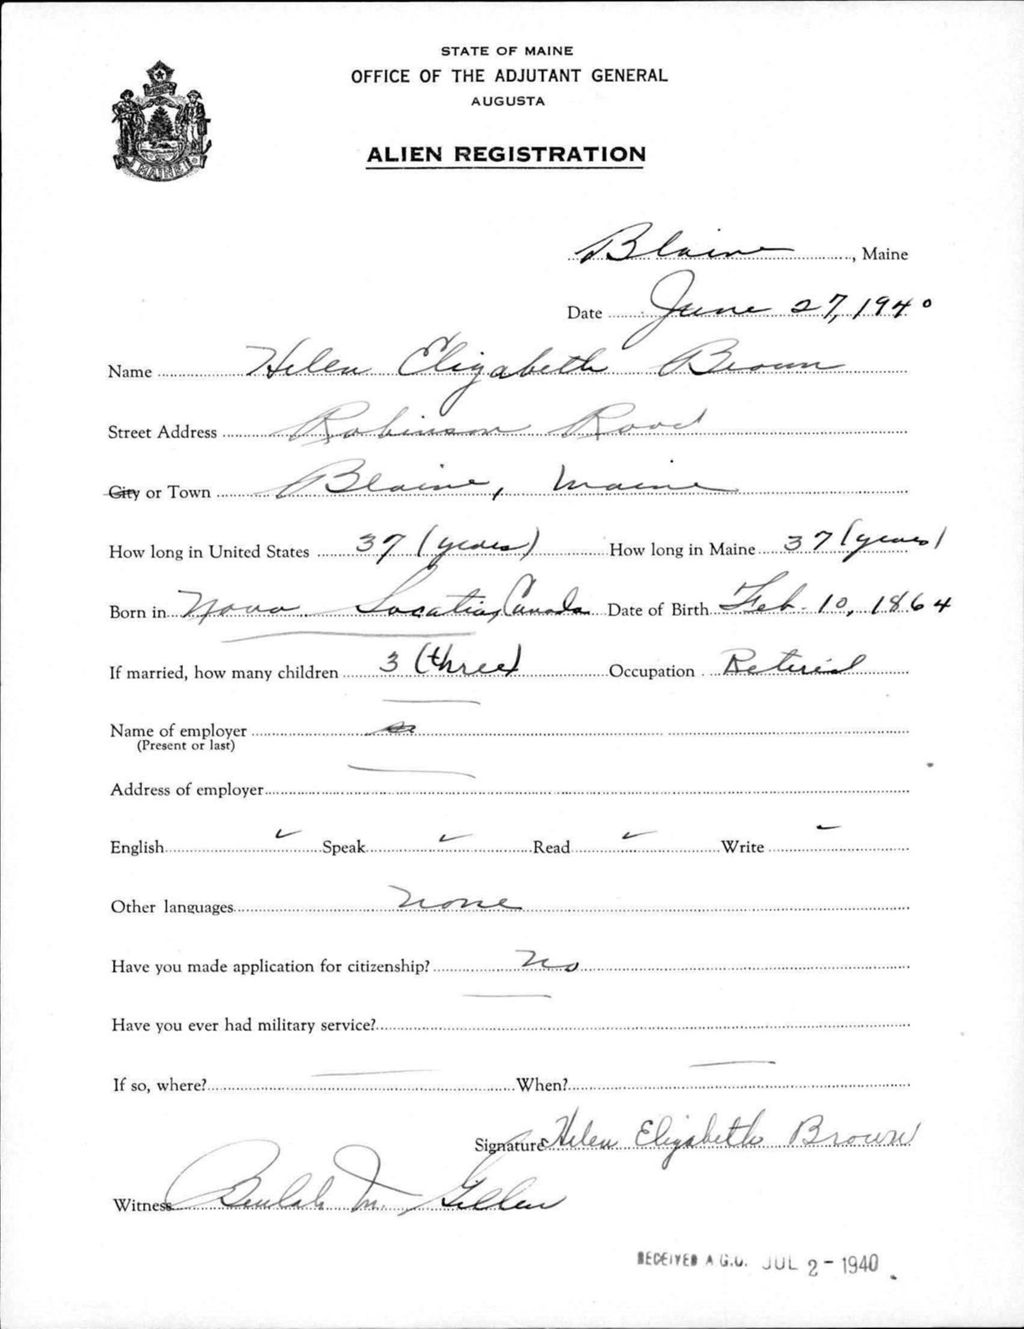 STATE OF MAINE
OFFICE OF THE ADJUTANT GENERAL
AUGUSTA
ALIEN REGISTRATION
MAINE
Blaine, Maine
Date June 27, 1940
Name Helen Elizabeth Brown
Street Address Robinson Road
City or Town Blaine, Maine
How long in United States 37 (years) How long in Maine 37 (years)
Born in Nova Socatia, Canada Date of Birth Feb. 10, 1864
If married, how many children 3 (three) Occupation Retired
Name of employer
(Present or last)
Address of employer
English ✓ Speak ✓ Read ✓ Write ✓
Other languages None
Have you made application for citizenship? No
Have you ever had military service?
If so, where? When?
Signature Helen Elizabeth Brown
Witness Beulah M. Gillen
RECEIVED A.G.O. JUL 2 - 1940